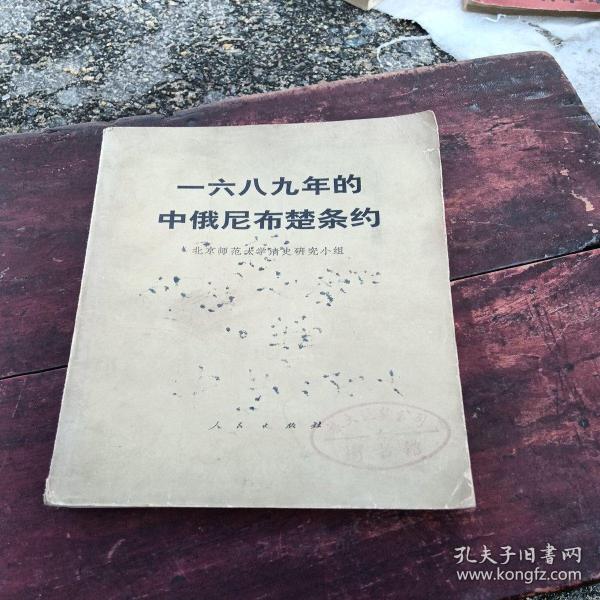 一六八九年的
中俄尼布楚条约
北京师范大学清史研究小组
人民出版社
图书馆
孔夫子旧书网
www.kongfz.com